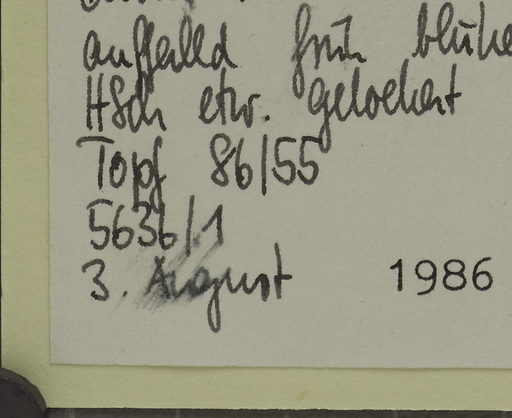 auffalld früh blühe
HSch etw. gelockert
Topf 86/55
5636/1
3. August 1986